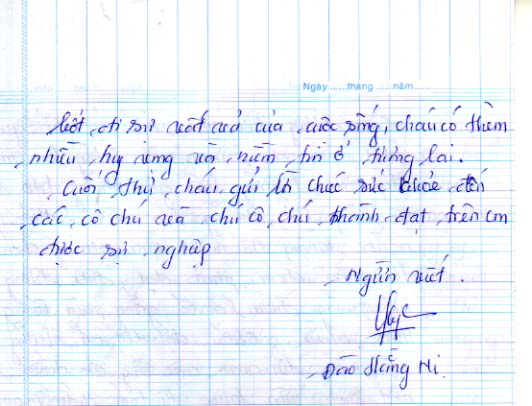 Ngày ......tháng ......năm......
bớt đi sự vất vả của cuộc sống, cháu có thêm
nhiều hy vọng và niềm tin ở tương lai.
Cuối thư, cháu gửi lời chúc sức khỏe đến
các cô chú và chú cô, chú thành đạt trên con
được sự nghiệp
Người viết.
Đào Hằng Ni